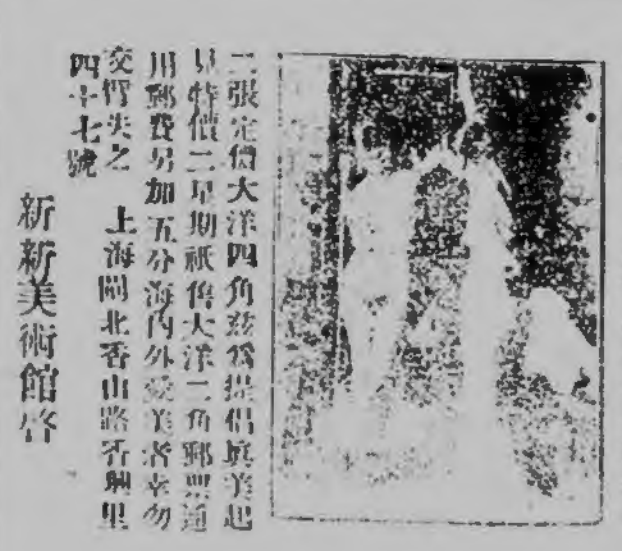 二張定價大洋四角茲爲提倡眞美起
見特價二星期祇售大洋二角郵票通
用郵費另加五分海內外愛美者幸勿
交臂失之　上海閘北香山路香興里
四十七號
新新美術館啓